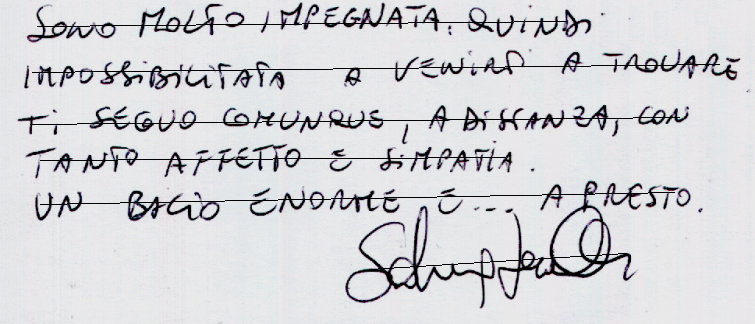 SONO MOLTO IMPEGNATA. QUINDI
IMPOSSIBILITATA A VENIRTI A TROVARE
TI SEGUO COMUNQUE, A DISTANZA, CON
TANTO AFFETTO E SIMPATIA.
UN BACIO ENORME E... A PRESTO.